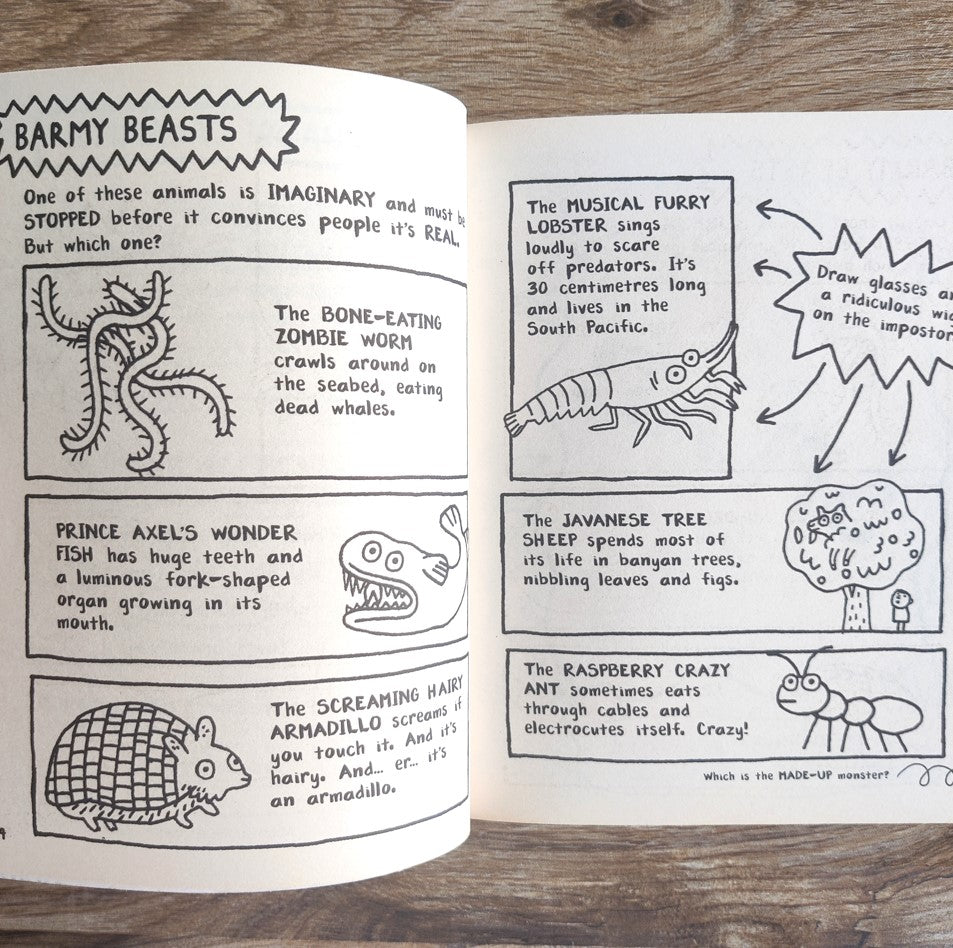 BARMY BEASTS
One of these animals is IMAGINARY and must be
STOPPED before it convinces people it's REAL.
But which one?
The BONE-EATING
ZOMBIE WORM
crawls around on
the seabed, eating
dead whales.
PRINCE AXEL'S WONDER
FISH has huge teeth and
a luminous fork-shaped
organ growing in its
mouth.
The SCREAMING HAIRY
ARMADILLO screams if
you touch it. And it's
hairy. And... er... it's
an armadillo.
The MUSICAL FURRY
LOBSTER sings
loudly to scare
off predators. It's
30 centimetres long
and lives in the
South Pacific.
Draw glasses
a ridiculous
on the impostor
The JAVANESE TREE
SHEEP spends most of
its life in banyan trees,
nibbling leaves and figs.
The RASPBERRY CRAZY
ANT sometimes eats
through cables and
electrocutes itself. Crazy!
Which is the MADE-UP monster?